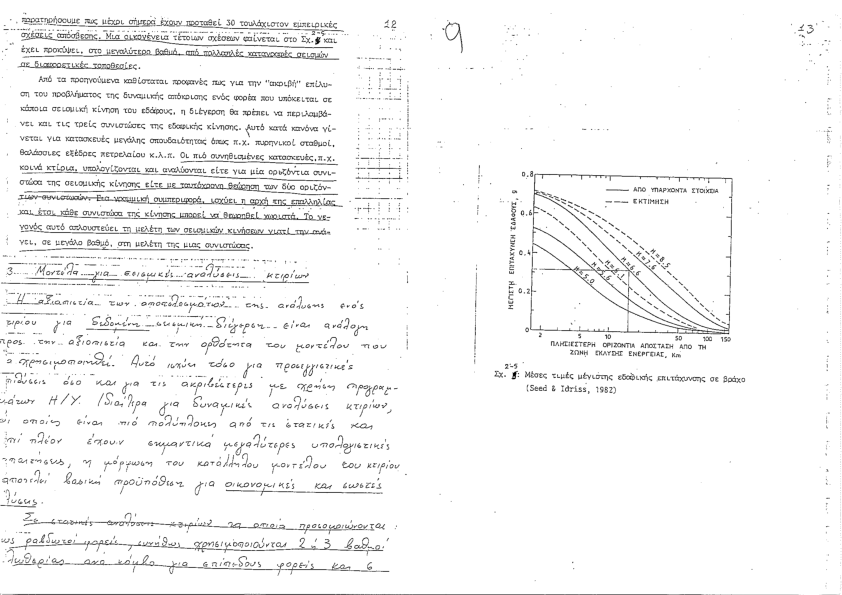 παρατηρήσουμε πως μέχρι σήμερα έχουν προταθεί 30 τουλάχιστον εμπειρικές
12
σχέσεις απόσβεσης. Μια οικογένεια τέτοιων σχέσεων φαίνεται στο Σχ. 2-5 και
έχει προκύψει, στο μεγαλύτερο βαθμό, από πολλαπλές καταγραφές σεισμών
σε διαφορετικές τοποθεσίες.
Από τα προηγούμενα καθίσταται προφανές πως για την "ακριβή" επίλυ-
ση του προβλήματος της δυναμικής απόκρισης ενός φορέα που υπόκειται σε
κάποια σεισμική κίνηση του εδάφους, η διέγερση θα πρέπει να περιλαμβά-
νει και τις τρείς συνιστώσες της εδαφικής κίνησης. Αυτό κατά κανόνα γί-
νεται για κατασκευές μεγάλης σπουδαιότητας όπως π.χ. πυρηνικοί σταθμοί,
θαλάσσιες εξέδρες πετρελαίου κ.λ.π. Οι πιό συνηθισμένες κατασκευές, π.χ.
κοινά κτίρια, υπολογίζονται και αναλύονται είτε για μία οριζόντια συνι-
στώσα της σεισμικής κίνησης είτε με ταυτόχρονη θεώρηση των δύο οριζόν-
τιων συνιστωσών. Για γραμμική συμπεριφορά, ισχύει η αρχή της επαλληλίας
και έτσι κάθε συνιστώσα της κίνησης μπορεί να θεωρηθεί χωριστά. Το γε-
γονός αυτό απλουστεύει τη μελέτη των σεισμικών κινήσεων γιατί την ανά-
γει, σε μεγάλο βαθμό, στη μελέτη της μιας συνιστώσας.
3. Μοντέλα για σεισμικές αναλύσεις κτιρίων
Η αξιοπιστία των αποτελεσμάτων της ανάλυσης ενός
κτιρίου για δεδομένη σεισμική διέγερση είναι ανάλογη
προς την αξιοπιστία και την ορθότητα του μοντέλου που
θα χρησιμοποιηθεί. Αυτό ισχύει τόσο για προσεγγιστικές
επιλύσεις όσο και για τις ακριβέστερες με χρήση προγραμ-
μάτων Η/Υ. Ιδιαίτερα για δυναμικές αναλύσεις κτιρίων,
οι οποίες είναι πιό πολύπλοκες από τις στατικές και
επί πλέον έχουν σημαντικά μεγαλύτερες υπολογιστικές
απαιτήσεις, η μόρφωση του κατάλληλου μοντέλου του κτιρίου
αποτελεί βασική προϋπόθεση για οικονομικές και σωστές
λύσεις.
Σε στατικές αναλύσεις κτιρίων τα οποία προσομοιώνονται
ως ραβδωτοί φορείς, συνήθως χρησιμοποιούνται 2 ή 3 βαθμοί
ελευθερίας ανά κόμβο για επίπεδους φορείς και 6
9
13
ΜΕΓΙΣΤΗ ΕΠΙΤΑΧΥΝΣΗ ΕΔΑΦΟΥΣ, g
0.8
0.6
0.4
0.2
0
ΑΠΟ ΥΠΑΡΧΟΝΤΑ ΣΤΟΙΧΕΙΑ
ΕΚΤΙΜΗΣΗ
M=8.5
M=7.6
M=6.6
M=6.1
M=5.6
M=5.0
2 5 10 50 100 150
ΠΛΗΣΙΕΣΤΕΡΗ ΟΡΙΖΟΝΤΙΑ ΑΠΟΣΤΑΣΗ ΑΠΟ ΤΗ
ΖΩΝΗ ΕΚΛΥΣΗΣ ΕΝΕΡΓΕΙΑΣ, Km
Σχ. 2-5: Μέσες τιμές μέγιστης εδαφικής επιτάχυνσης σε βράχο
(Seed & Idriss, 1982)